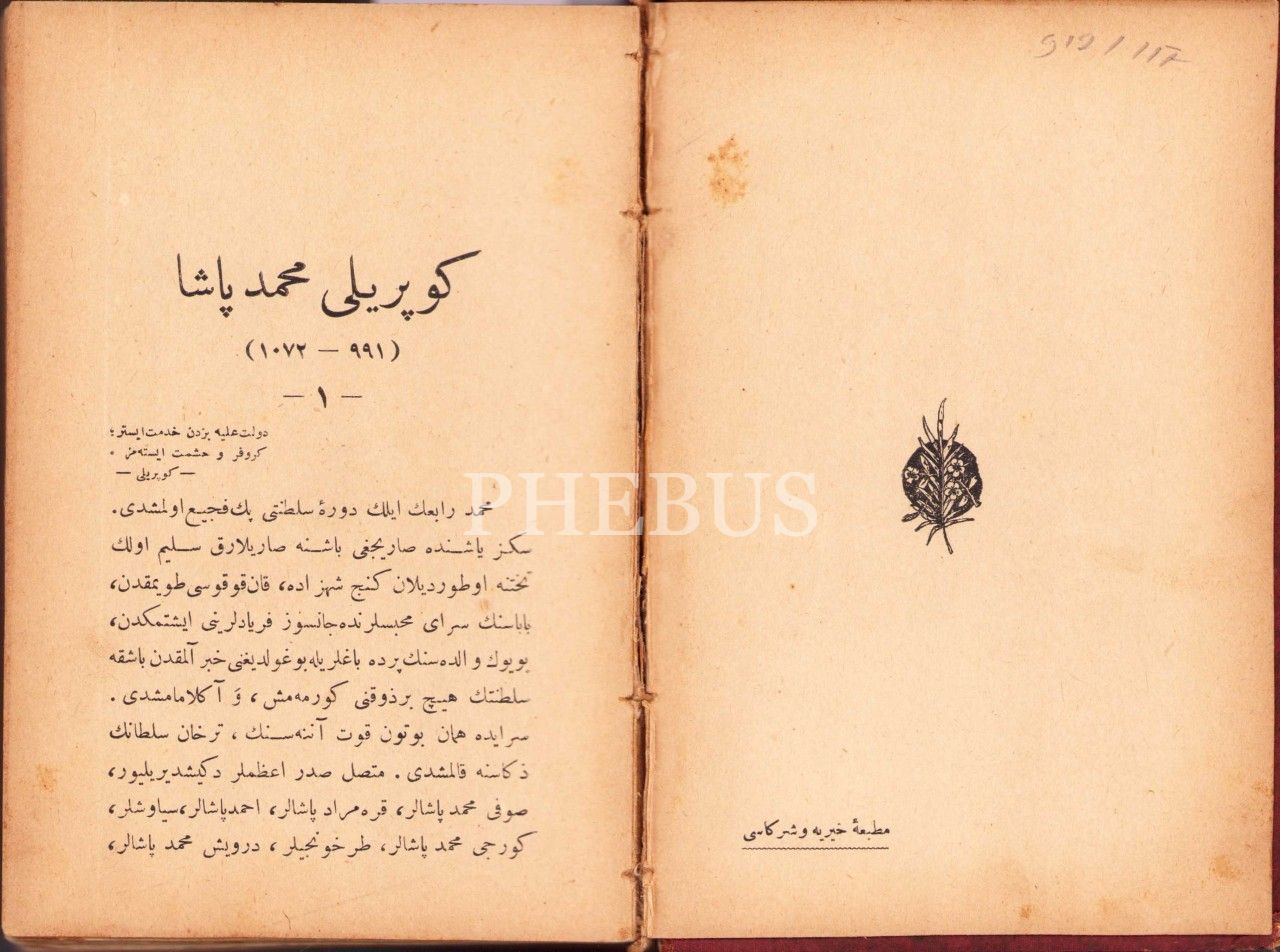 912 / 112
مطبعۀ خیریه وشرکاسی
کوپریلی محمد پاشا
(٩٩١ — ١٠٧٢)
— ١ —
دولت علیه بزدن خدمت ایستر؛
کروفر و حشمت ایسته‌مز .
— کوپریلی —
محمد رابعك ایلك دورۀ سلطنتی پك فجیع اولمشدی.
سکز یاشنده صاریجغی باشنه صاریلارق سلیم اولك
تختنه اوطوردیلان کنج شهزاده، قان قوقوسی طویمقدن،
باباسنك سرای محبسلرنده جانسوز فریادلرینی ایشتمکدن،
بویوك والده‌سنك پرده باغلریله بوغولدیغنی خبر آلمقدن باشقه
سلطنتك هیچ برذوقنی کورمه‌مش، وَ آکلامامشدی.
سرایده همان بوتون قوت آننه‌سنك، ترخان سلطانك
ذکاسنه قالمشدی. متصل صدر اعظملر دکیشدیریلیور،
صوفی محمد پاشالر، قره مراد پاشالر، احمدپاشالر، سیاوشلر،
کورجی محمد پاشالر، طرخونجیلر، درویش محمد پاشالر،
PHEBUS